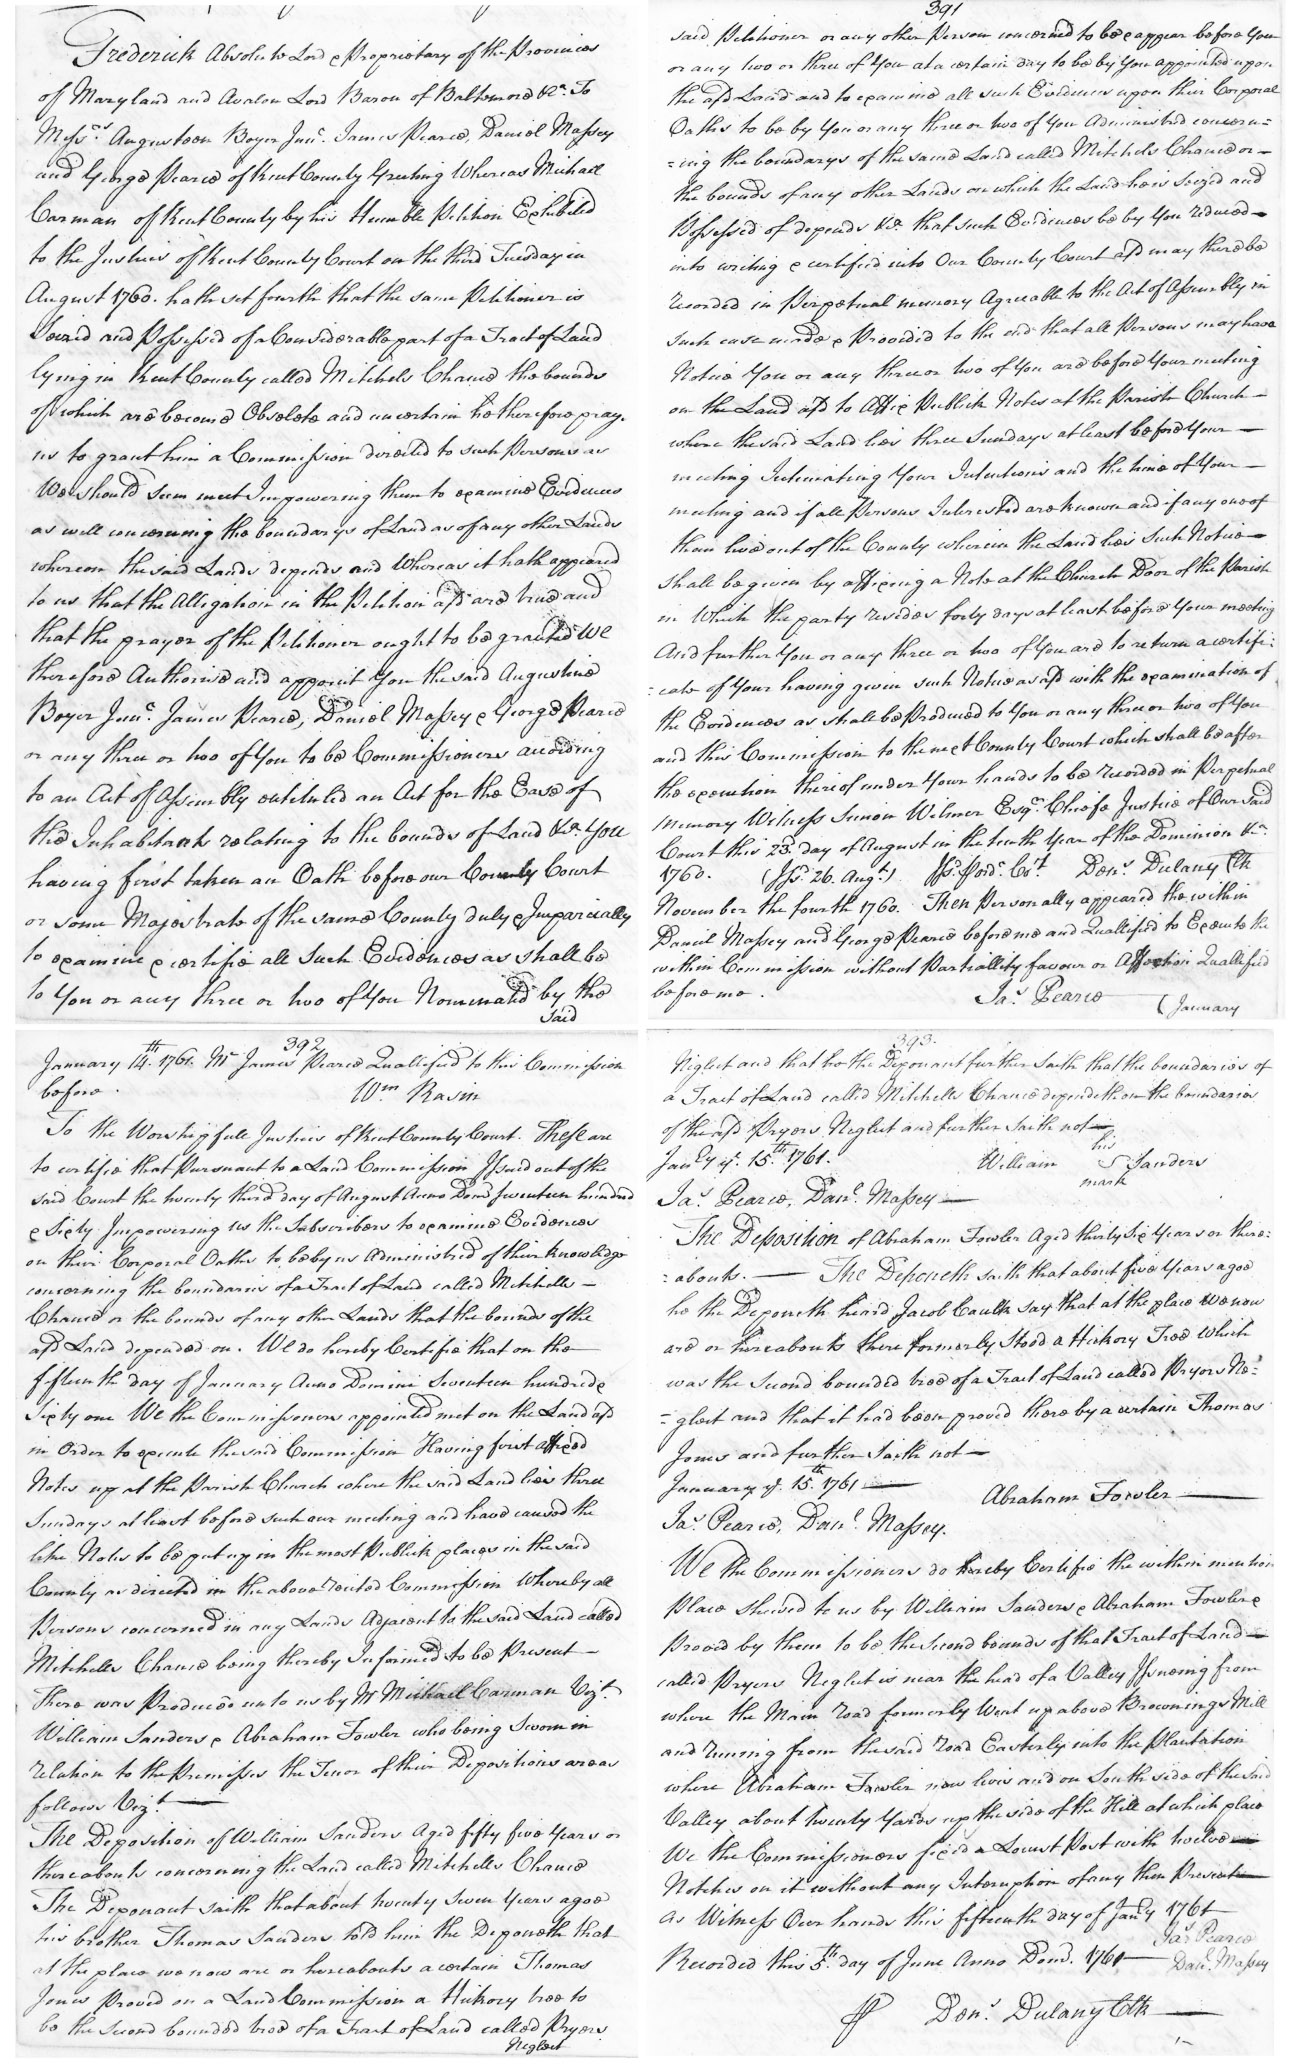 Frederick Absolute Lord & Proprietary of the Provinces
of Maryland and Avalon Lord Baron of Baltemore &ca. To
Messrs. Augusteen Boyer Junr. James Pearce, Daniel Massey
and George Pearce of Kent County Greeting Whereas Michael
Carman of Kent County by his Humble Petition Exhibited
to the Justices of Kent County Court on the third Tuesday in
August 1760. hath set fourth that the same Petitioner is
Seized and Possessed of a Considerable part of a Tract of Land
lying in Kent County called Mitchels Chance the bounds
of which are become Obsolete and uncertain he therefore pray.
us to grant him a Commission directed to such Persons as
We should seem meet Impowering them to examine Evidences
as well concerning the boundarys of Land as of any other Lands
whereon the said Lands depends and Whereas it hath appeared
to us that the Alligation in the Petition afd are true and
that the prayer of the Petitioner ought to be granted We
therefore Authorise and appoint You the said Augustine
Boyer Junr. James Pearce, Daniel Massey & George Pearce
or any three or two of You to be Commissioners according
to an Act of Assembly entituled an Act for the Ease of
the Inhabitants relating to the bounds of Land &ca. You
having first taken an Oath before our County Court
or some Majestrate of the same County duly & Imparcially
to examine & certifie all such Evidences as shall be
to You or any three or two of You Nominated by the
said
391
said Petitioner or any other Person concerned to be & appear before You
or any two or three of You at a certain day to be by You appointed upon
the afd Land and to examine all such Evidences upon their Corporal
Oaths to be by You or any three or two of You Administred concern=
=ing the boundarys of the same Land called Mitchels Chance or
the bounds of any other Lands on which the Land he is Seized and
Possessed of depends &ca. that such Evidences be by You reduced
into writing & certified into Our County Court afd may there be
recorded in Perpetual memory Agreable to the Act of Assembly in
such case made & Provided to the end that all Persons may have
Notice You or any three or two of You are before Your meeting
on the Land afd to Affix Publick Notes at the Parish Church
where the said Land lies three Sundays at least before Your
meeting Intimating Your Intentions and the time of Your
meeting and if all Persons Interested are known and if any one of
them live out of the County wherein the Land lies such Notice
shall be given by affixing a Note at the Church Door of the Parish
in Which the party resides forty days at least before Your meeting
And further You or any three or two of You are to return a certifi=
=cate of Your having given such Notice as afd with the examination of
the Evidences as shall be Produced to You or any three or two of You
and this Commission to the next County Court which shall be after
the execution thereof under Your hands to be recorded in Perpetual
Memory Witness Simon Wilmer Esqr. Chiefe Justice of Our said
Court this 23d. day of August in the tenth Year of the Dominion &ca.
1760. (Iss. 26. Augt.) Dens. Dulany Clk
November the fourth 1760. Then Personally appeared the within
Daniel Massey and George Pearce before me and Quallified to Execute the
within Commission without Partiallity favour or Affection Quallified
before me. Jas. Pearce
(January
392
January 14th. 1761. Mr. James Pearce Quallified to this Commission
before. Wm Rasin
To the Worshipfull Justices of Kent County Court. These are
to certifie that Pursuant to a Land Commission Issued out of the
said Court the twenty third day of August Anno Domi seventeen hundred
& Sixty Impowering us the Subscribers to examine Evidences
on their Corporal Oaths to be by us Administred of their knowledge
concerning the boundaries of a Tract of Land called Mitchells
Chance or the bounds of any other Lands that the bounds of the
afd Land depended on. We do hereby Certifie that on the
fifteenth day of January Anno Domini Seventeen hundred &
Sixty one We the Commissioners appointed met on the Land afd
in Order to execute the said Commission Having first affixed
Notes up at the Parish Church where the said Land lies three
Sundays at least before such our meeting and have caused the
like Notes to be put up in the most Publick places in the said
County as directed in the above recited Commission Whereby all
Persons concerned in any Lands Adjacent to the said Land called
Mitchells Chance being thereby Informed to be Present
There was Produced unto us by Mr Michael Carman Vizt.
William Sanders & Abraham Fowler who being Sworn in
relation to the Premisses the Tenor of their Depositions are as
follows Vizt.
The Deposition of William Sanders Aged fifty five Years or
thereabouts concerning the Land called Mitchells Chance
The Deponant saith that about twenty seven Years agoe
his brother Thomas Sanders told him the Deponeth that
at the place we now are or hereabouts a certain Thomas
Jones Proved on a Land Commission a Hickory tree to
be the second bounded tree of a Tract of Land called Pryers
Neglect
393.
Neglect and that he the Deponant further Saith that the boundaries of
a Tract of Land called Mitchells Chance dependeth on the boundaries
of the afd Pryers Neglect and further saith not
Jan'y ye. 15.th 1761. William his S mark Sanders
Jas. Pearce, Danl. Massey
The Deposition of Abraham Fowler Aged thirty Six Years or there=
=abouts. The Deponeth saith that about five Years agoe
he the Deponeth heard Jacob Caulk say that at the place we now
are or hereabouts there formerly stood a Hickory Tree Which
was the Second bounded tree of a Tract of Land called Pryors Ne=
=glect and that it had been proved there by a certain Thomas
Jones and further saith not
January ye. 15th. 1761
Abraham Fowler
Jas. Pearce, Danl. Massey.
We the Commissioners do hereby Certifie the within mention
Place shewed to us by William Sanders & Abraham Fowler &
Proved by them to be the second bounds of that Tract of Land
called Pryers Neglect is near the head of a Valley Issueing from
where the Main road formerly Went up above Brownings Mill
and runing from the said road Easterly into the Plantation
where Abraham Fowler now lives and on South side of the said
Valley about twenty Yards up the side of the Hill at which place
We the Commissioners fixed a Locust Post with twelve
Notches on it without any Interuption of any then Present
As Witness Our hands this fifteenth day of Jan'y 1761
Jas Pearce
Recorded this 5th. day of June Anno Domi. 1761 Danl. Massey
Dens. Dulany Clk